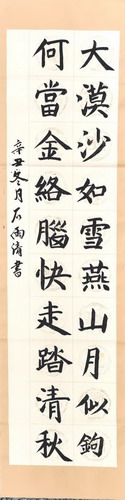 大漠沙如雪燕山月似鉤
何當金絡腦快走踏清秋
辛丑冬月石雨清書